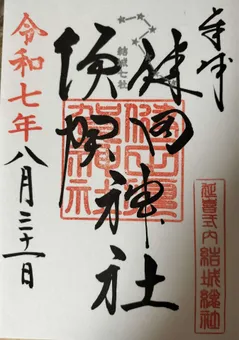 奉拝
結城七社
健田
須賀
神社
延喜式内 結城總社
令和七年
八月三十一日